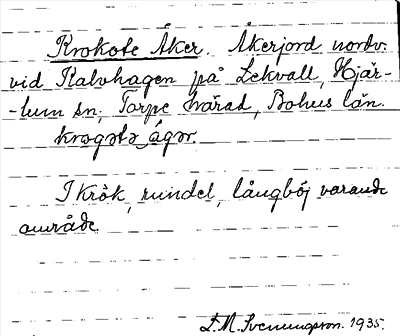 Krokote Åker. Åkerjord nordv.
vid Kalvhagen på Lekvall, Hjär-
-tum sn, Torpe härad, Bohus län.
krogətə ågər.
I krök, rundel, långböj varande
område.
F.M. Svenungson. 1935.